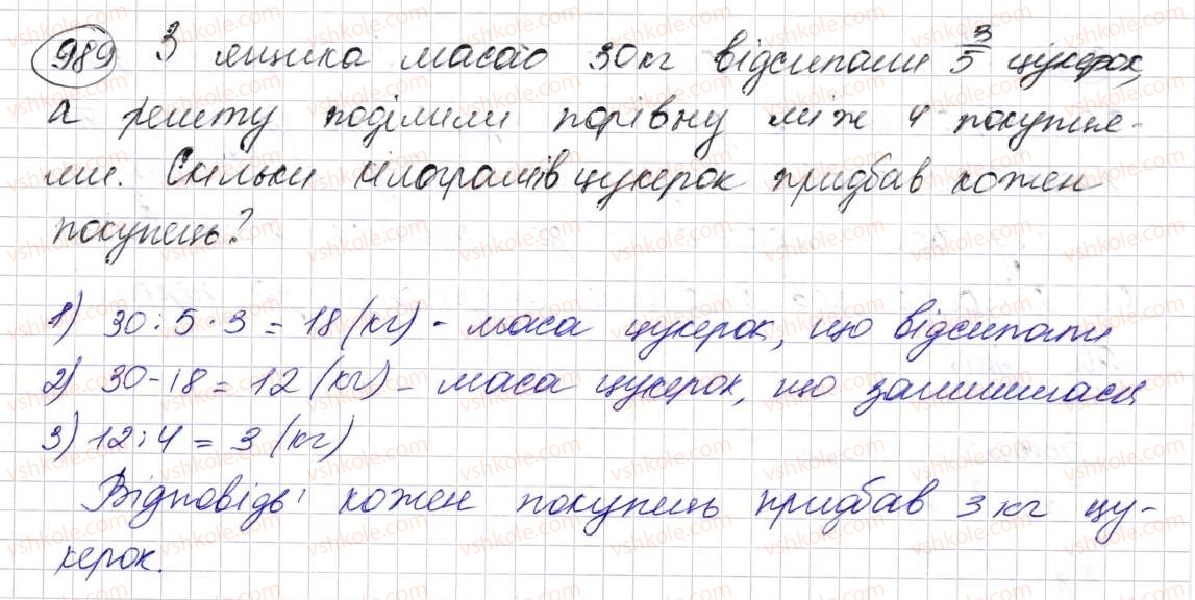 989 З ящика масою 30 кг відсипали 3/5 цукерок,
а решту поділили порівну між 4 покупця-
ми. Скільки кілограмів цукерок придбав кожен
покупець?
1) 30 : 5 · 3 = 18 (кг) - маса цукерок, що відсипали
2) 30 - 18 = 12 (кг) - маса цукерок, що залишилась
3) 12 : 4 = 3 (кг)
Відповідь: кожен покупець придбав 3 кг цу-
керок.